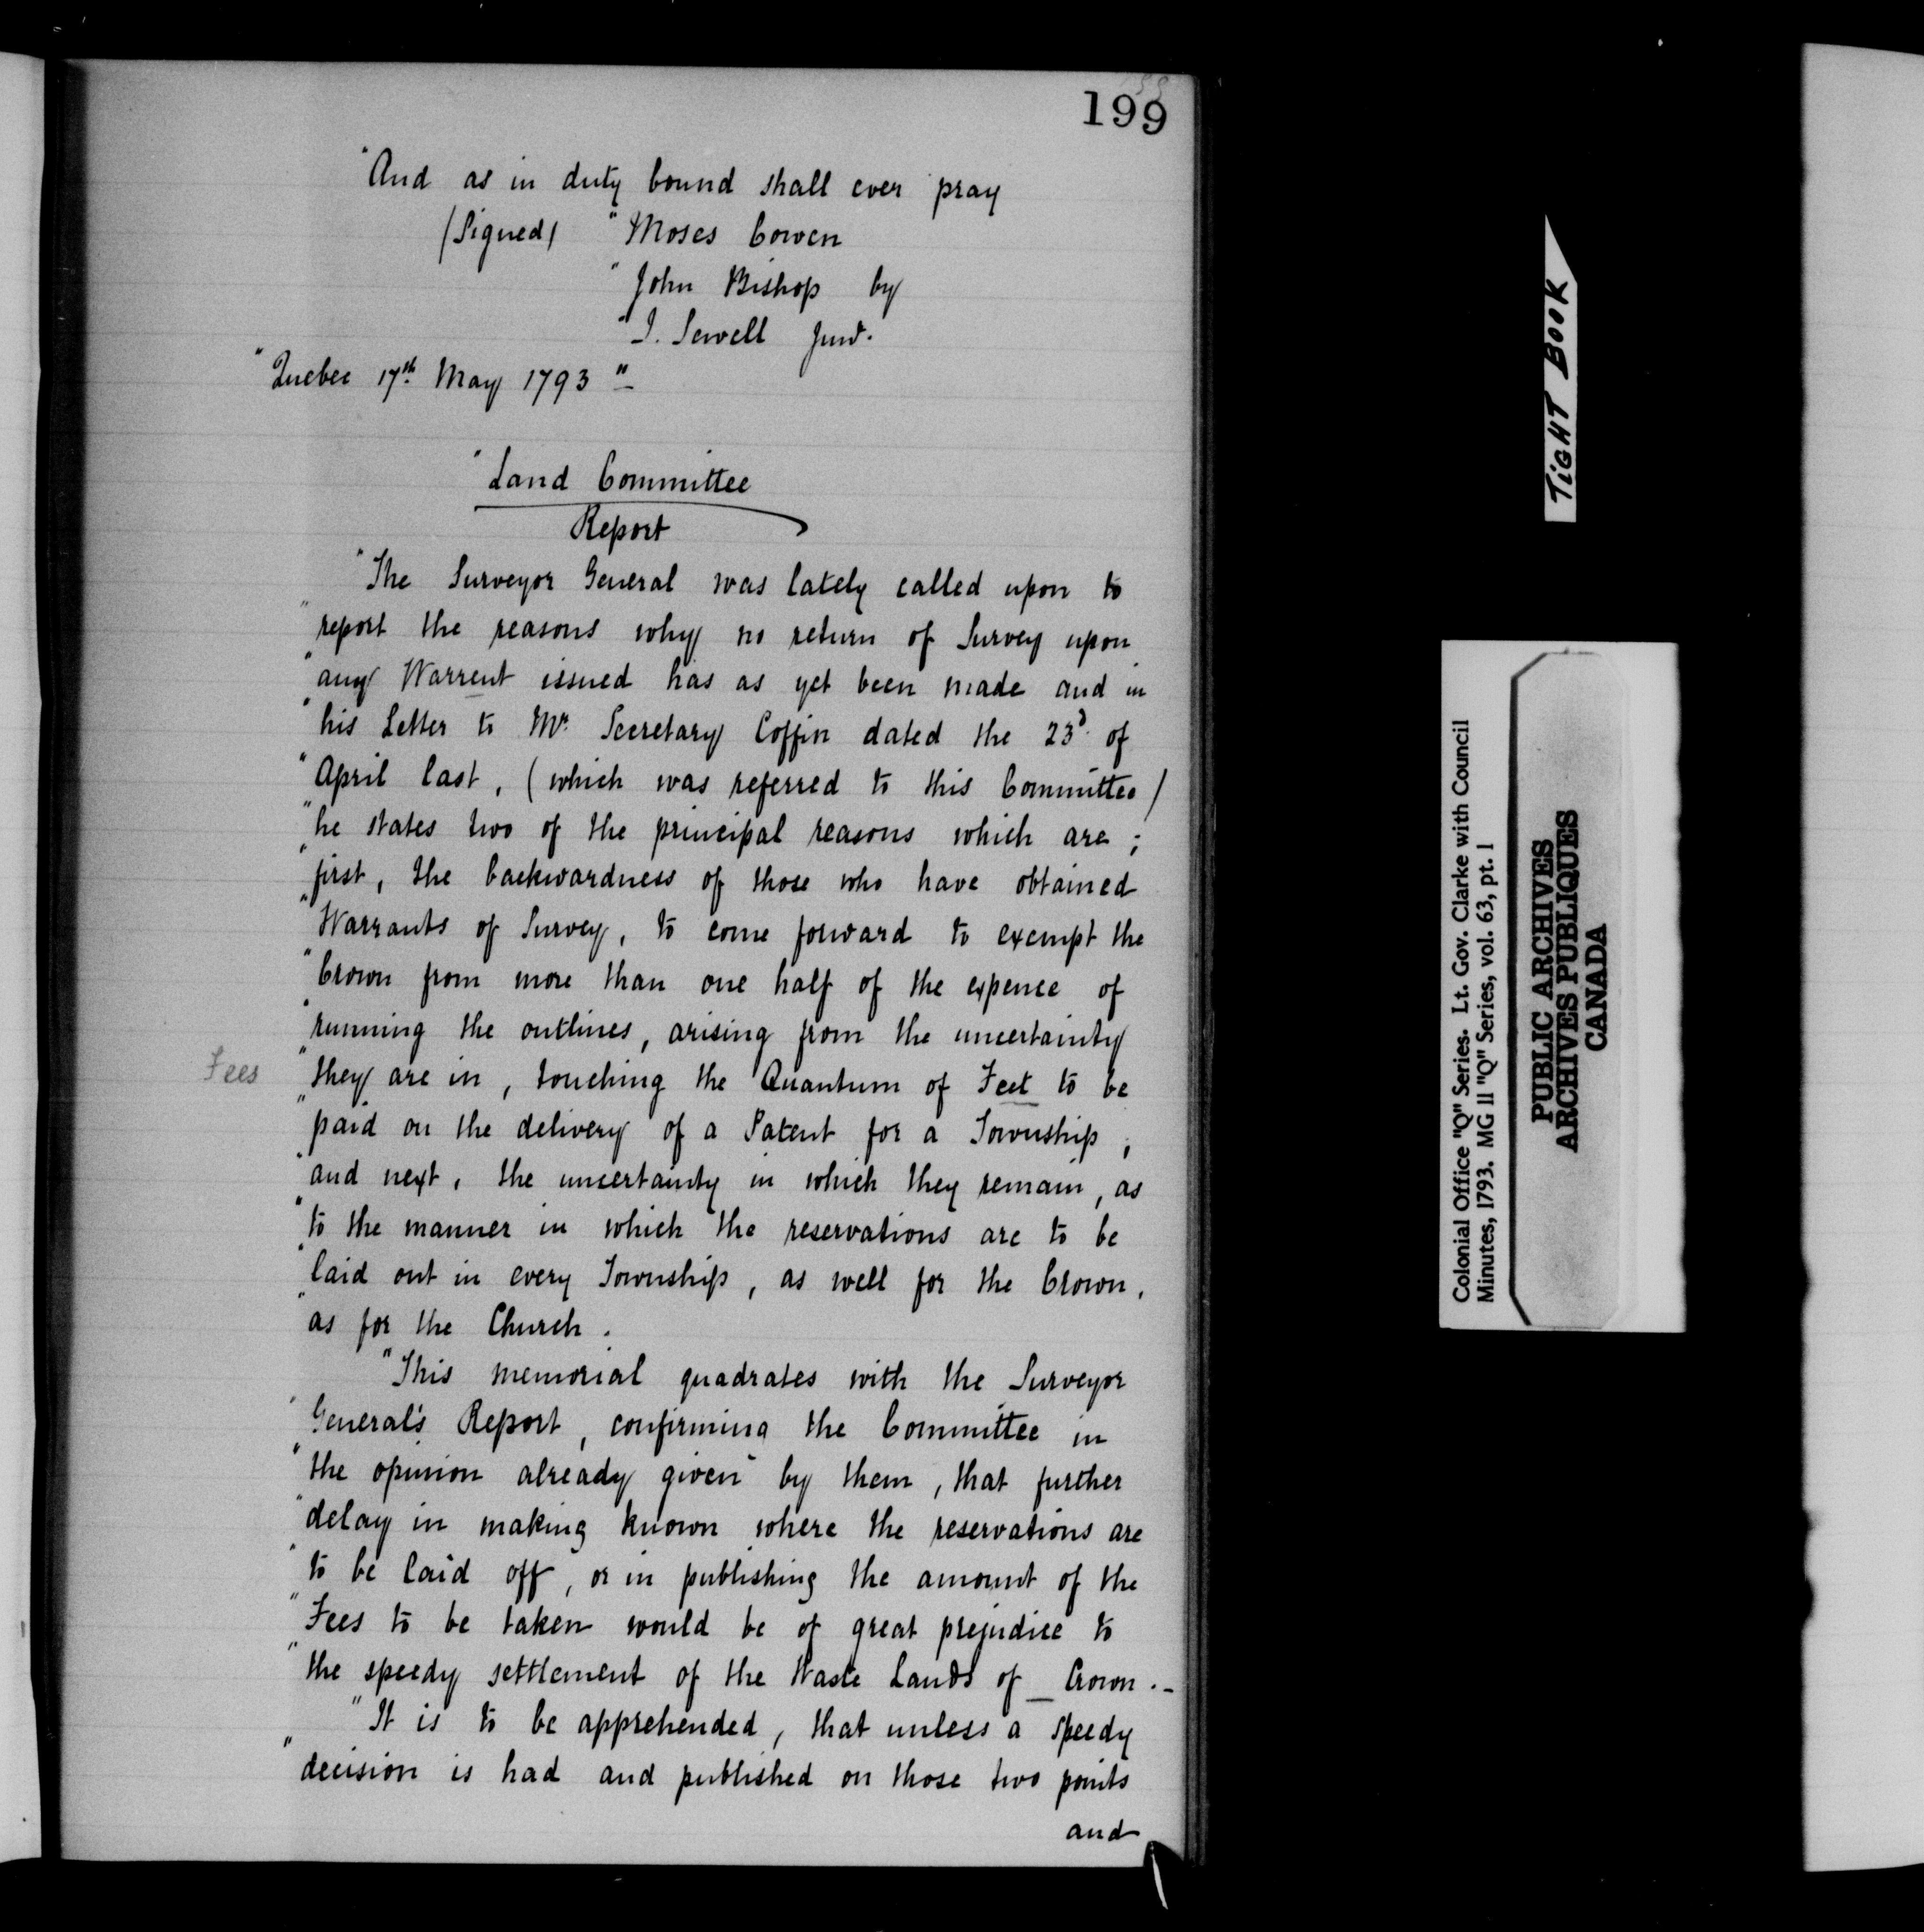 199
"And as in duty bound shall ever pray
(Signed) "Moses Cowen
"John Bishop by
"J. Sewell Junr.
"Quebec 17th May 1793"
"Land Committee
Report
"The Surveyor General was lately called upon to
"report the reasons why no return of Survey upon
"any Warrent issued has as yet been made and in
"his Letter to Mr. Secretary Coffin dated the 23d. of
"April last, (which was referred to this Committee)
"he states two of the principal reasons which are;
"first, the backwardness of those who have obtained
"Warrants of Survey, to come forward to exempt the
"Crown from more than one half of the expence of
"running the outlines, arising from the uncertainty
Fees "they are in, touching the Quantum of Feet to be
"paid on the delivery of a Patent for a Township;
"and next, the uncertainty in which they remain, as
"to the manner in which the reservations are to be
"laid out in every Township, as well for the Crown,
"as for the Church.
"This memorial quadrates with the Surveyor
"General's Report, confirming the Committee in
"the opinion already given by them, that further
"delay in making known where the reservations are
"to be laid off, or in publishing the amount of the
"Fees to be taken would be of great prejudice to
"the speedy settlement of the Waste Lands of _ Crown.-
"It is to be apprehended, that unless a speedy
"decision is had and published on those two points
and
TIGHT BOOK
Colonial Office "Q" Series. Lt. Gov. Clarke with Council
Minutes, 1793. MG 11 "Q" Series, vol. 63, pt. 1
PUBLIC ARCHIVES
ARCHIVES PUBLIQUES
CANADA